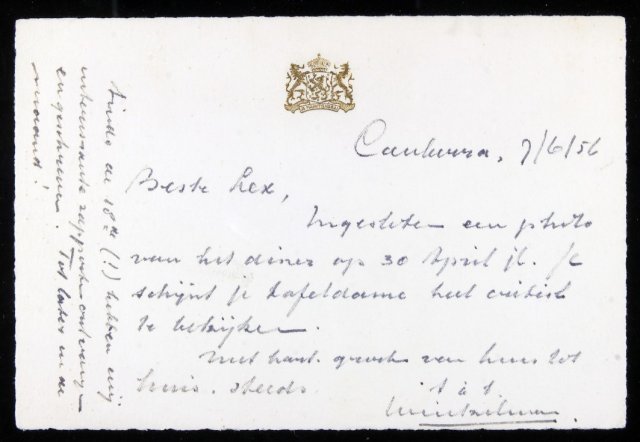 Canberra, 7/6/56
Beste Lex,
Ingesloten een photo
van het diner op 30 April jl. Je
schijnt je tafeldame heel critisch
te bekijken.
Met hart. groeten van huis tot
huis. steeds
t à t.
Sinds de 18de (!) hebben wij
interessante rapporten ontvang-
en geschreven. Tot later in de
maand!